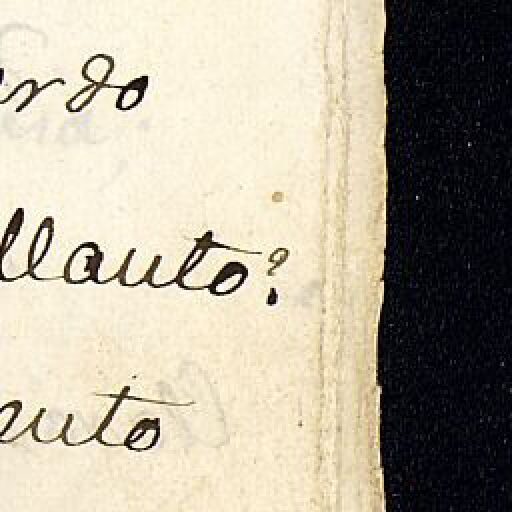 rdo
llanto?
nto